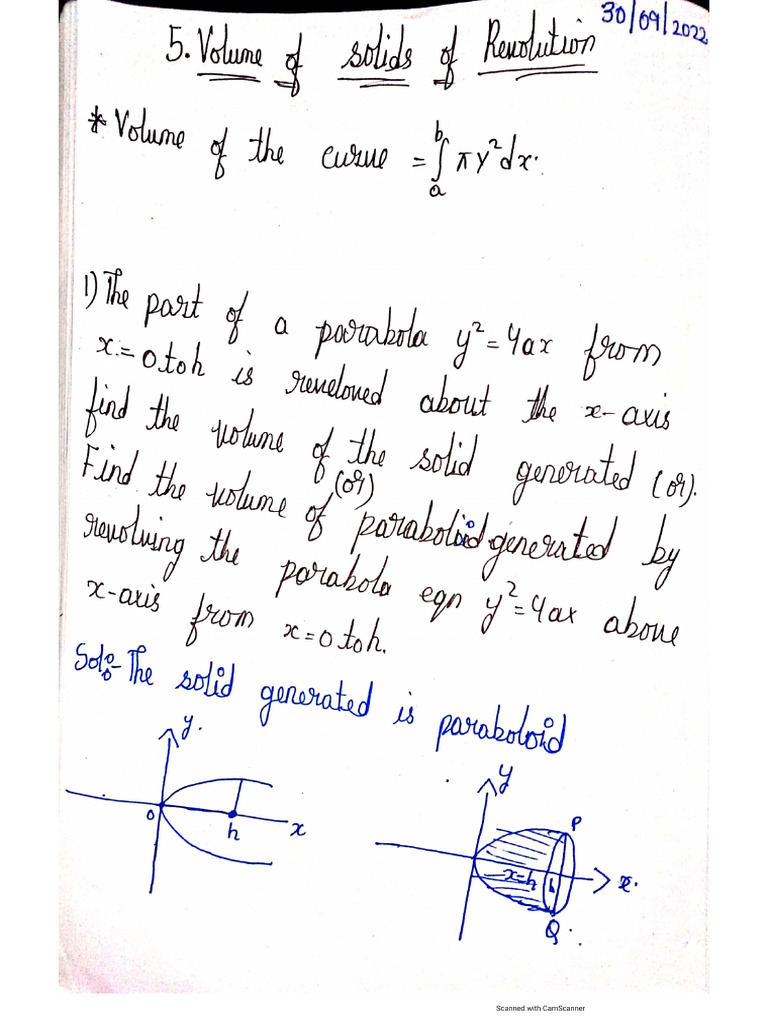 30/09/2022
5. Volume of solids of Revolution
* Volume of the curve = ∫ₐᵇ πy²dx.
1) The part of a parabola y² = 4ax from
x = 0 to h is reveloved about the x-axis
find the volume of the solid generated (or).
(or)
Find the volume of paraboloid generated by
revolving the parabola eqn y² = 4ax above
x-axis from x = 0 to h.
Sol:- The solid generated is paraboloid
y.
o
h
x
y
P
x=h
h
x.
Q.
Scanned with CamScanner